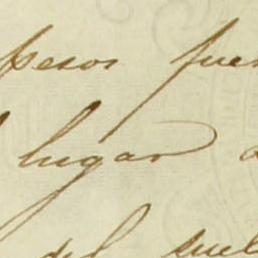 pesos fuer
lugar a
del suel